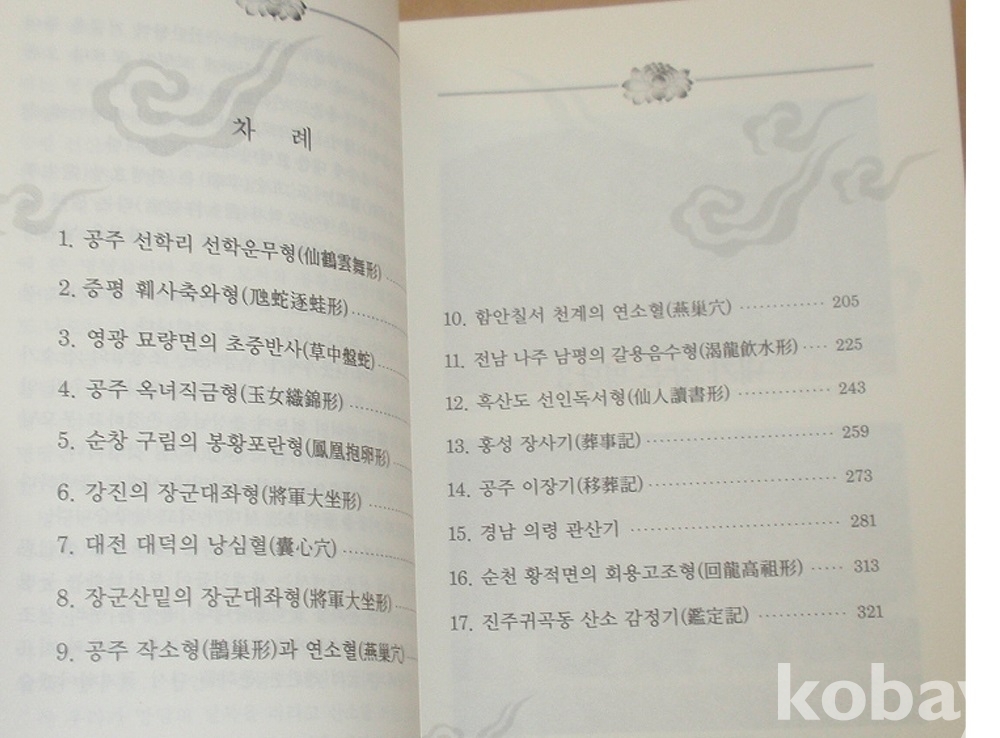 차 례
1. 공주 선학리 선학운무형(仙鶴雲舞形)
2. 증평 훼사축와형(虺蛇逐蛙形)
3. 영광 묘량면의 초중반사(草中盤蛇)
4. 공주 옥녀직금형(玉女織錦形)
5. 순창 구림의 봉황포란형(鳳凰抱卵形)
6. 강진의 장군대좌형(將軍大坐形)
7. 대전 대덕의 낭심혈(囊心穴)
8. 장군산밑의 장군대좌형(將軍大坐形)
9. 공주 작소형(鵲巢形)과 연소혈(燕巢穴)
10. 함안칠서 천계의 연소혈(燕巢穴) ············ 205
11. 전남 나주 남평의 갈용음수형(渴龍飮水形) ···· 225
12. 흑산도 선인독서형(仙人讀書形) ············ 243
13. 홍성 장사기(葬事記) ·························· 259
14. 공주 이장기(移葬記) ·························· 273
15. 경남 의령 관산기 ······························ 281
16. 순천 황적면의 회용고조형(回龍高祖形) ····· 313
17. 진주귀곡동 산소 감정기(鑑定記) ············ 321
kobay